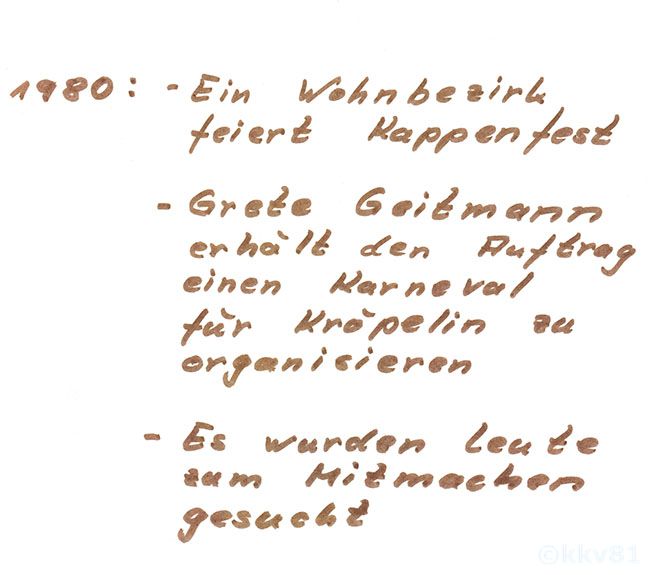 1980: - Ein Wohnbezirk
feiert Kappenfest
- Grete Geitmann
erhält den Auftrag
einen Karneval
für Kröpelin zu
organisieren
- Es wurden Leute
zum Mitmachen
gesucht
©kkv81